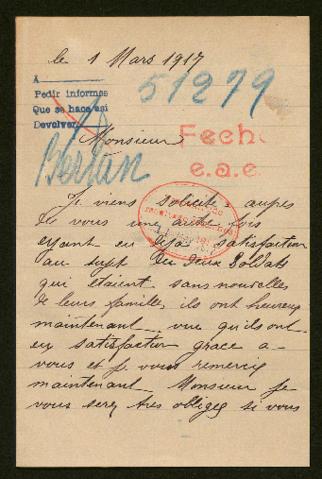 le 1 Mars 1917
A
Pedir informes
Que se haca así
Devolver
51279
Monsieur
Fecho
e.a.e.
Berlin
Je viens solicite aupres
de vous une autre fois
eyant eu deja satisfaction
au sujet du deux Soldats
qui etaient sans nouvelles
de leurs famille, ils ont heureux
maintenant vue qu'ils ont
eu satisfaction grace a
vous et je vous remercie
maintenant Monsieur je
vous serez tres obliges si vous